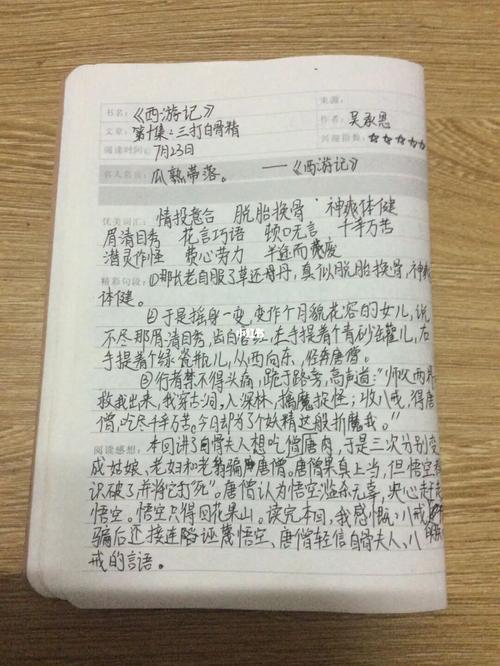 书名：《西游记》 来源：
文章：第十集：三打白骨精 作者：吴承恩
阅读时间：7月23日 兴趣指数：☆☆☆☆☆
名人名言：瓜熟蒂落。 ——《西游记》
优美词汇：情投意合 脱胎换骨 神爽体健
眉清目秀 花言巧语 顿口无言 千辛万苦
潜灵作怪 费心劳力 半途而废
精彩句段：①那长老自服了草还丹，真似脱胎换骨，神爽
体健。
②于是摇身一变，变作个月貌花容的女儿，说
不尽那眉清目秀，齿白唇红，左手提着个青砂罐儿，右
手提着个绿瓷瓶儿，从西向东，径奔唐僧。
③行者禁不得头痛，跪于路旁，高声道：“师父两界
救我出来，我穿古洞，入深林，擒魔捉怪；收八戒，得唐
僧，吃尽千辛万苦。今日却为了个妖精这般折磨我。”
阅读感想：本回讲了白骨夫人想吃唐僧肉，于是三次分别变
成姑娘、老妇和老翁骗唐僧。唐僧果真上当，但悟空看
识破了并将它打“死”。唐僧认为悟空滥杀无辜，狠心赶走
悟空。悟空只得回花果山。读完本回，我感慨：八戒
骗后还接连蹈诬蔑悟空、唐僧轻信白骨夫人、八
戒的言语。